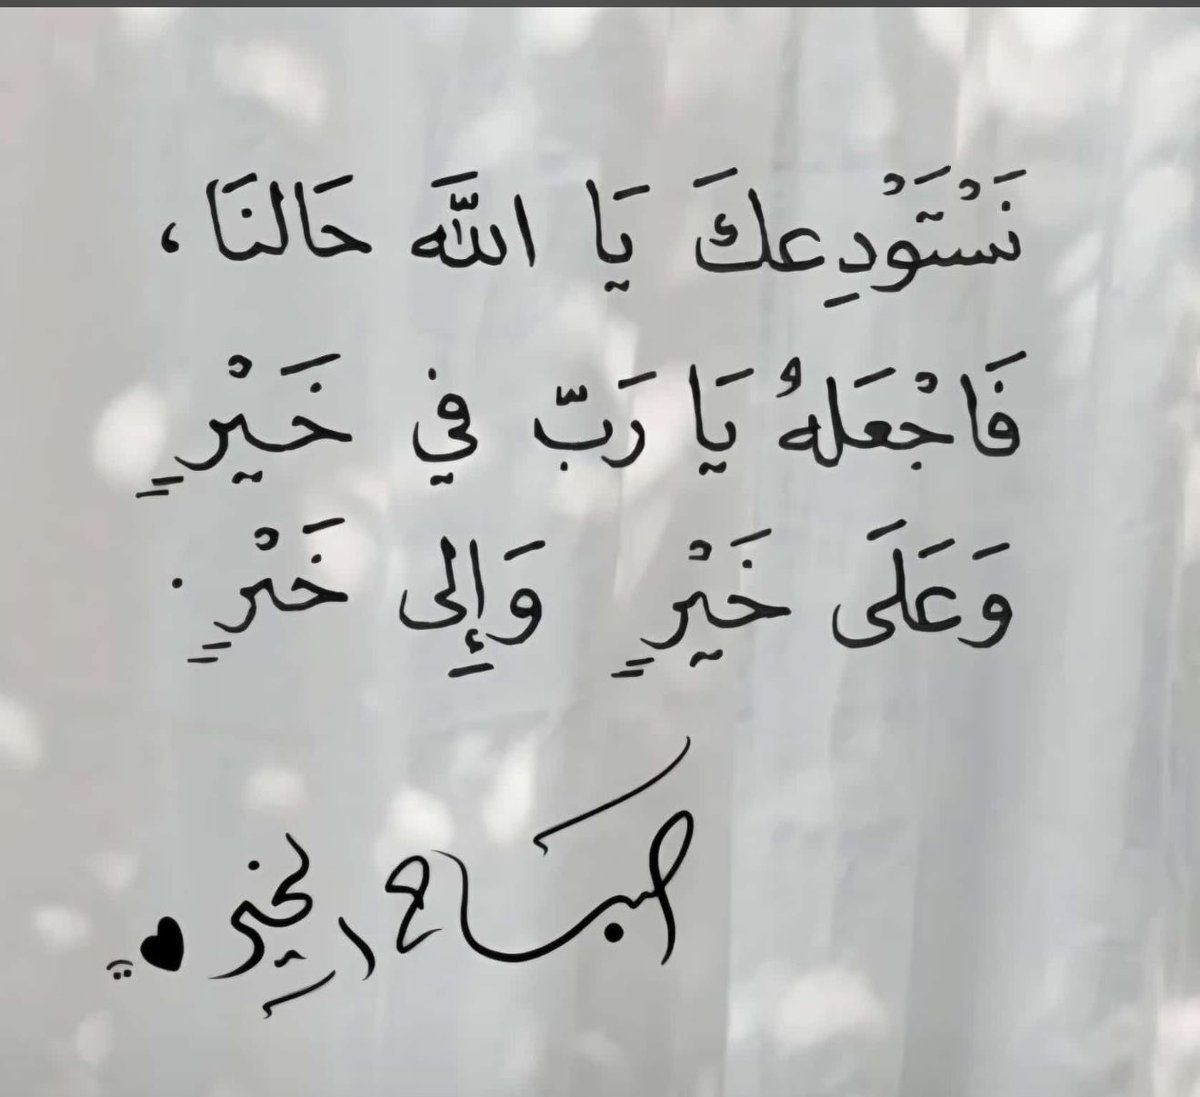 نَسْتَوْدِعكَ يَا اللَّه حَالنَا،
فَاجْعَلهُ يَا رَبّ فِي خَيْرٍ
وَعَلَى خَيْرٍ وَإِلى خَيْرٍ.
صباح الخير